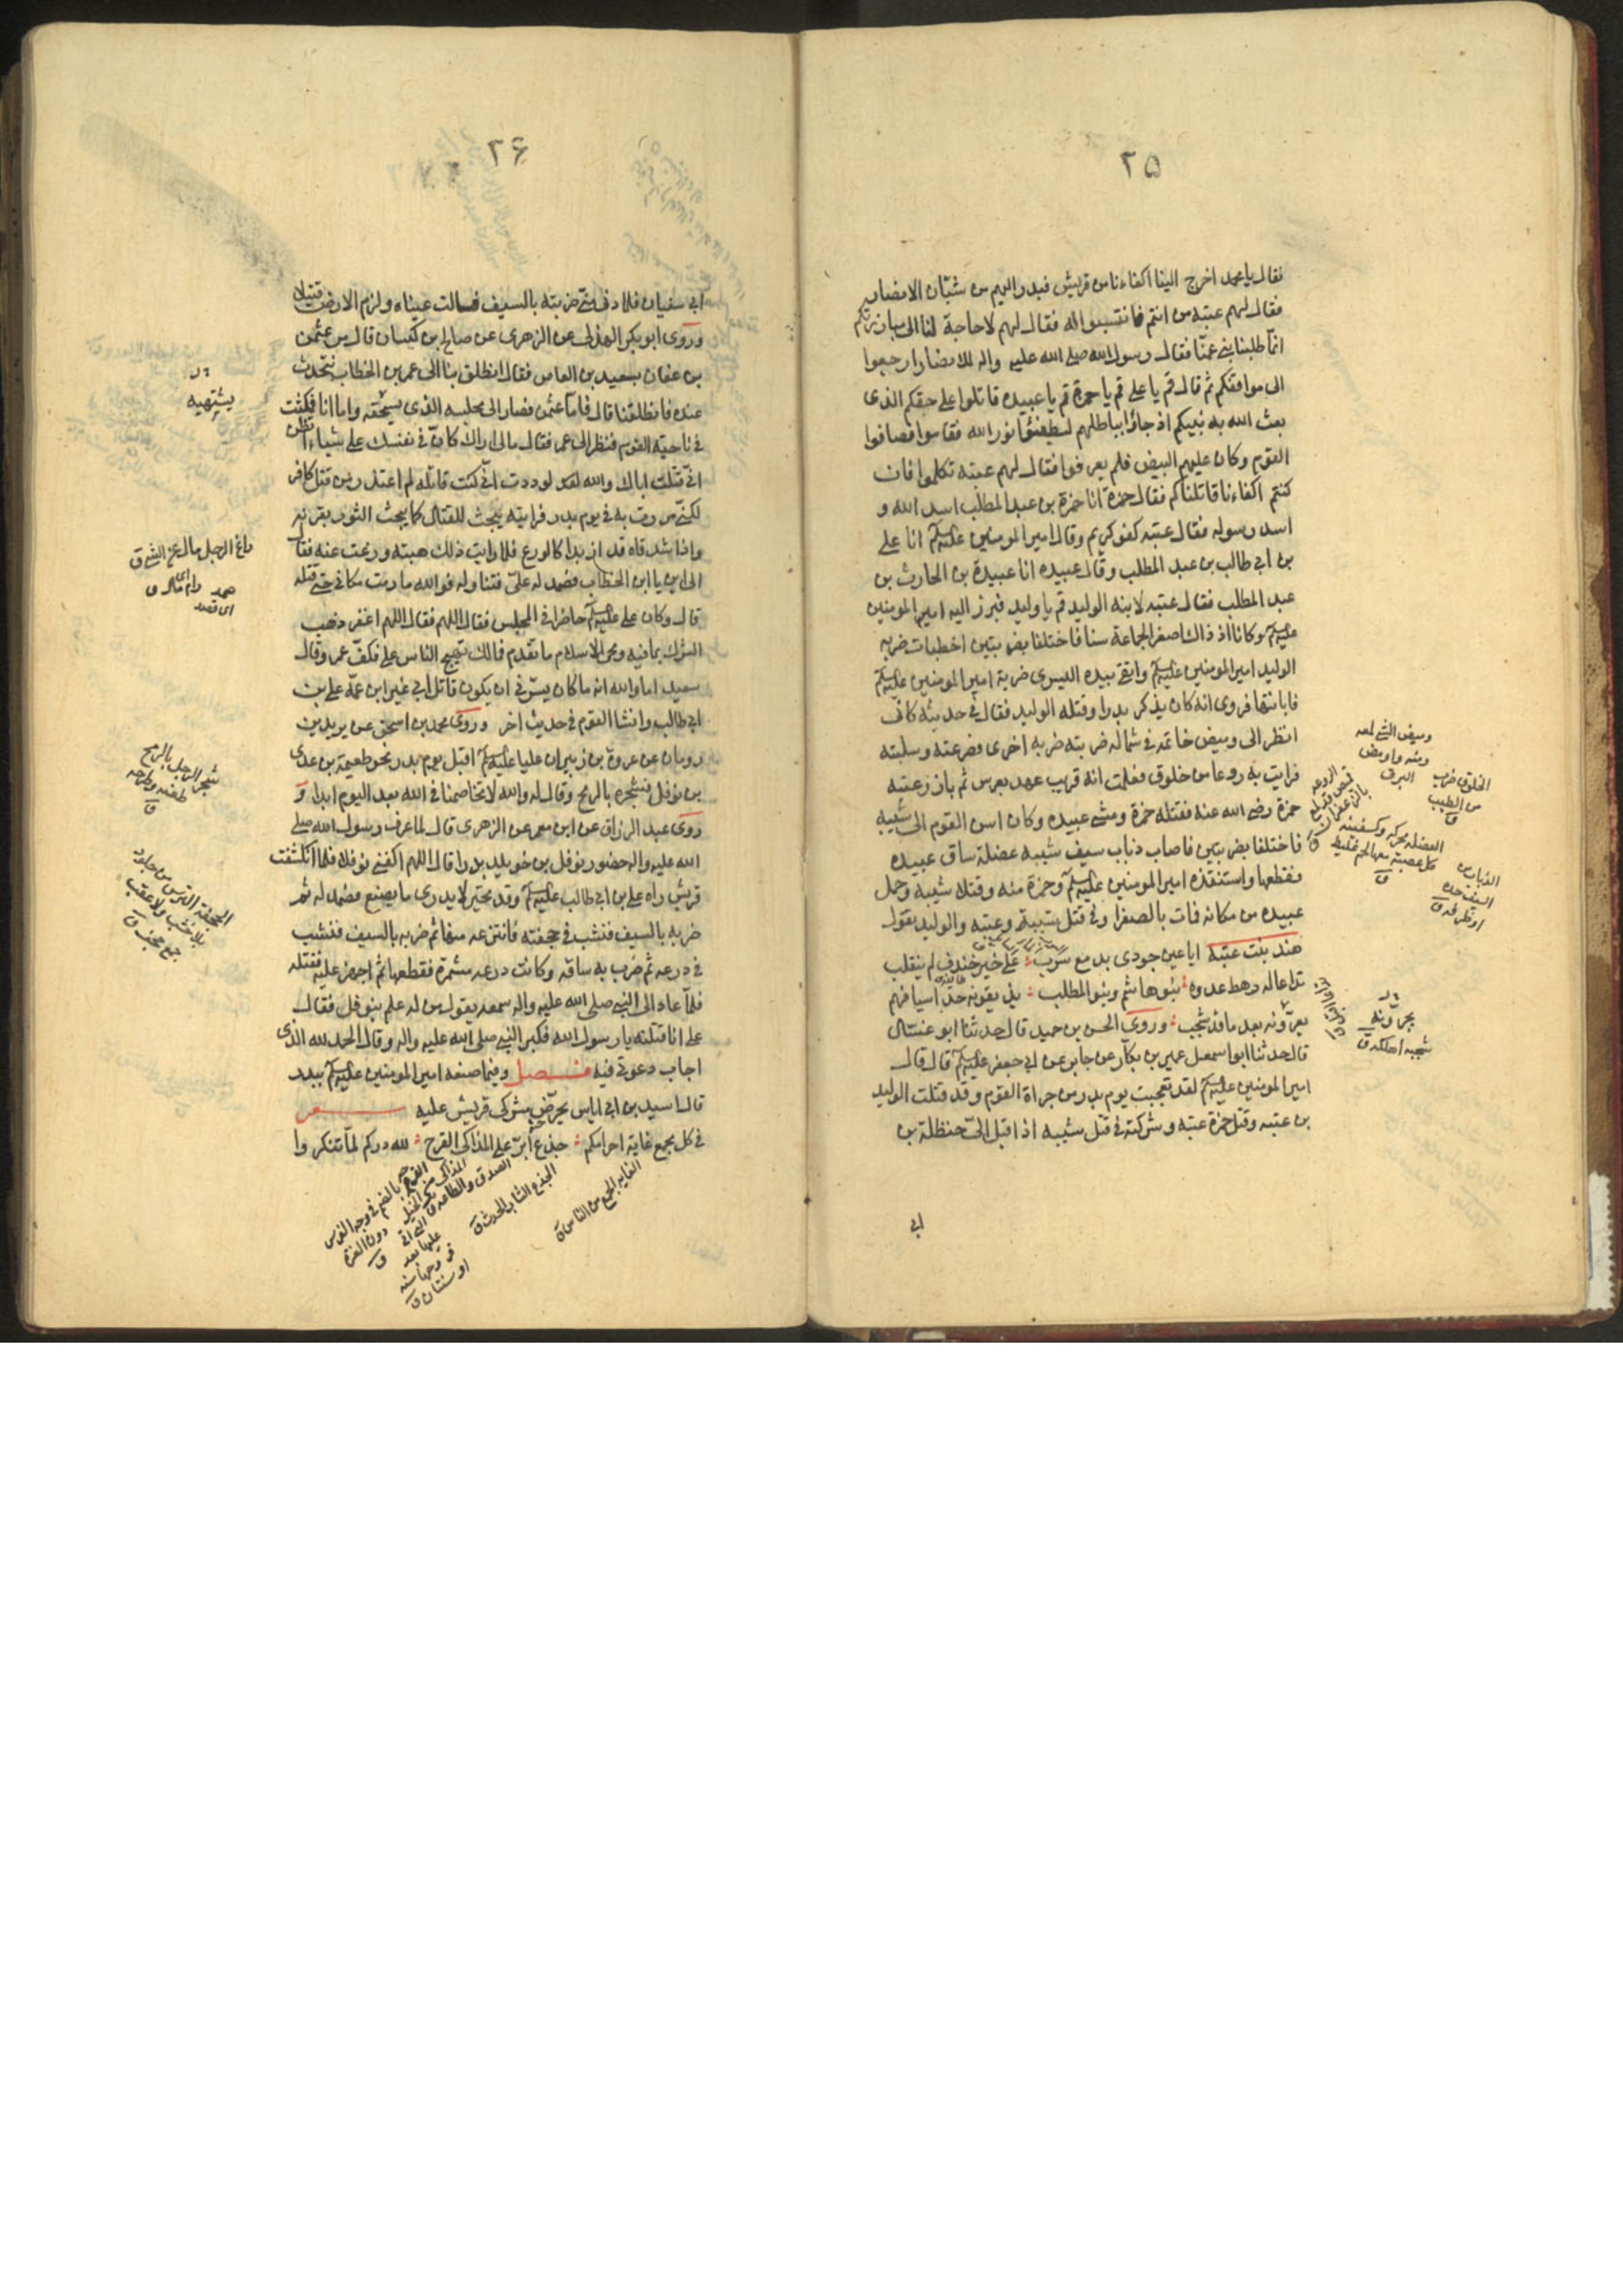 ٢٥
فقال يا محمد اخرج الينا اكفاءنا من قريش فبدر اليهم من شبّان الانصار
فقال لهم عتبه من انتم فانتسبوا له فقال لهم لاحاجة لنا الى مبارزتكم
انمّا طلبنا بني عمّنا فقال رسول الله صلى الله عليه واله للانصار ارجعوا
الى مواقفكم ثم قال قم يا على قم يا حمزة قم يا عبيده قاتلوا على حقكم الذى
بعث الله به نبيكم اذ جاؤا بباطلهم ليطفئوا نور الله فقاموا فصافوا
القوم وكان عليهم البيض فلم يعرفوا فقال لهم عتبه تكلموا فان
كنتم اكفاءنا قاتلناكم فقال حمزة انا حمزة بن عبد المطلب اسد الله و
اسد رسوله فقال عتبه كفو كريم وقال امير المومنين عليه السلم انا على
بن ابي طالب بن عبد المطلب وقال عبيده انا عبيدة بن الحارث بن
عبد المطلب فقال عتبه لابنه الوليد قم يا وليد فبرز اليه امير المومنين
عليه السلم وكانا اذ ذاك اصغر الجماعة سنا فاختلفا بضربتين اخطات ضربه
الوليد امير المومنين عليه السلم واتقى بيده اليسرى ضربة امير المومنين عليه السلم
فابانتها فروى انه كان يذكر بدرا وقتله الوليد فقال في حديثه كانى
انظر الى وميض خاتمه في شماله ضربته ضربه اخرى فصرعته وسلبته
فرايت به ردعا من خلوق فعلمت انه قريب عهد بعرس ثم بارز عتبه
حمزة رضى الله عنه فقتله حمزة ومشى عبيده وكان اسن القوم الى شيبه
فاختلفا بضربتين فاصاب ذباب سيف شيبه عضلة ساق عبيده
فقطعها واستنقذه امير المومنين عليه السلم وحمزة منه وقتلا شيبه وحمل
عبيده من مكانه فمات بالصفرا وفي قتل شيبة وعتبه والوليد يقول
هند بنت عتبه ايا عين جودى بدمع سرب على خير خندف لم ينقلب
تداعاله رهط غدوة بنو هاشم وبنو المطلب يذيقونه حدّ اسيافهم
يعرّونه بعد ما قد شجب وروى الحسن بن حميد قال حدثنا ابو غسّان
قال حدثنا ابو اسمعيل عمير بن بكّار عن جابر عن ابي جعفر عليه السلم قال قال
امير المومنين عليه السلم لقد تعجبت يوم بدر من جراة القوم وقد قتلت الوليد
بن عتبه وقتل حمزة عتبه وشركته في قتل شيبه اذ اقبل الىّ حنظلة بن
ابي
وميض الشي لمعه
ومنه واوميض
البرق
الخلوق ضرب
من الطيب
ق
العضله محركه وكسفينه
كل عصبة معها لحم غليظ
ق
الذباب من
السيف حده
او طرفه ق
يجرونه
شجبه اهلكه ق
٢۶
ابي سفيان فلما دنى منّى ضربته بالسيف فسالت عيناه ولزم الارض قتيلا
وروى ابو بكر الهذلى عن الزهرى عن صالح بن كيسان قال مر عثمن
بن عفان بسعيد بن العاص فقال انطلق بنا الى عمر بن الخطاب نتحدث
عنده فانطلقنا قال فامّا عثمن فصار الى مجلسه الذى يستحقه واما انا فمكثت
في ناحية القوم فنظر الى عمر فقال مالى اراك كانّ في نفسك على شياء اتظن
انى قتلت اباك والله لوددت انى كنت قاتله لم اعتذر من قتل كافر
لكنّى مررت به في يوم بدر فرايته يبحث للقتال كما يبحث الثور بقرنه
واذا شدقاه قد ازبدا كالورغ فلما رايت ذلك هبته ورغت عنه فقال
الى اين يا ابن الخطاب فصمد له علىّ فتناوله فوالله ما رمت مكانى حتى قتله
قال وكان على عليه السلم حاضرا في المجلس فقال اللهم فقال اللهم اغفر ذهب
الشرك بما فيه ومحى الاسلام ما تقدم فمالك تهيج الناس على فكفّ عمر وقال
سعيد اما والله انه ما كان يسرّنى ان يكون قاتل ابي غير ابن عمّه على بن
ابي طالب وانشا القوم في حديث اخر وروى محمد بن اسحق عن يزيد بن
رومان عن عروة بن زبير ان عليا عليه السلم اقبل يوم بدر نحو طعيمة بن عدى
بن نوفل فشجره بالرمح وقال له والله لا تخاصمنا في الله بعد اليوم ابدا وَ
روى عبد الرزاق عن ابن معمر عن الزهرى قال لما عرف رسول الله صلى
الله عليه واله حضور نوفل بن خويلد بدرا قال اللهم اكفنى نوفلا فلما انكشفت
قريش راه على بن ابي طالب عليه السلم وقد تحيّر لا يدرى ما يصنع فصمد له ثم
ضربه بالسيف فنشب في حجفته فانتزعه منها ثم ضربه بالسيف فنشب
في درعه ثم ضرب به ساقه وكانت درعه مشمرة فقطعها ثم اجهز عليه فقتله
فلمّا عاد الى النبي صلى الله عليه واله سمعه يقول من له علم بنوفل فقال
على انا قتلته يا رسول الله فكبر النبي صلى الله عليه واله وقال الحمد لله الذى
اجاب دعوتى فيه فصل وفيما صنعه امير المومنين عليه السلم ببدر
قال اسيد بن ابي اياس يحرّض مشركى قريش عليه شعر
في كل مجمع غاية اخزاكم جذع ابرّ على المذاكى القرح لله دركم لمّا تنكروا
يشتهيه
راغ الرجل مال عن الشى ق
صمد
اى قصد
شجر الرجل بالرمح
طعنه
ق
الحجفة الترس من جلود
بلا خشب ولا عقب
جمع حجف ق
الغايه الجمع من الناس ق
الجذع الشاب الحدث ق